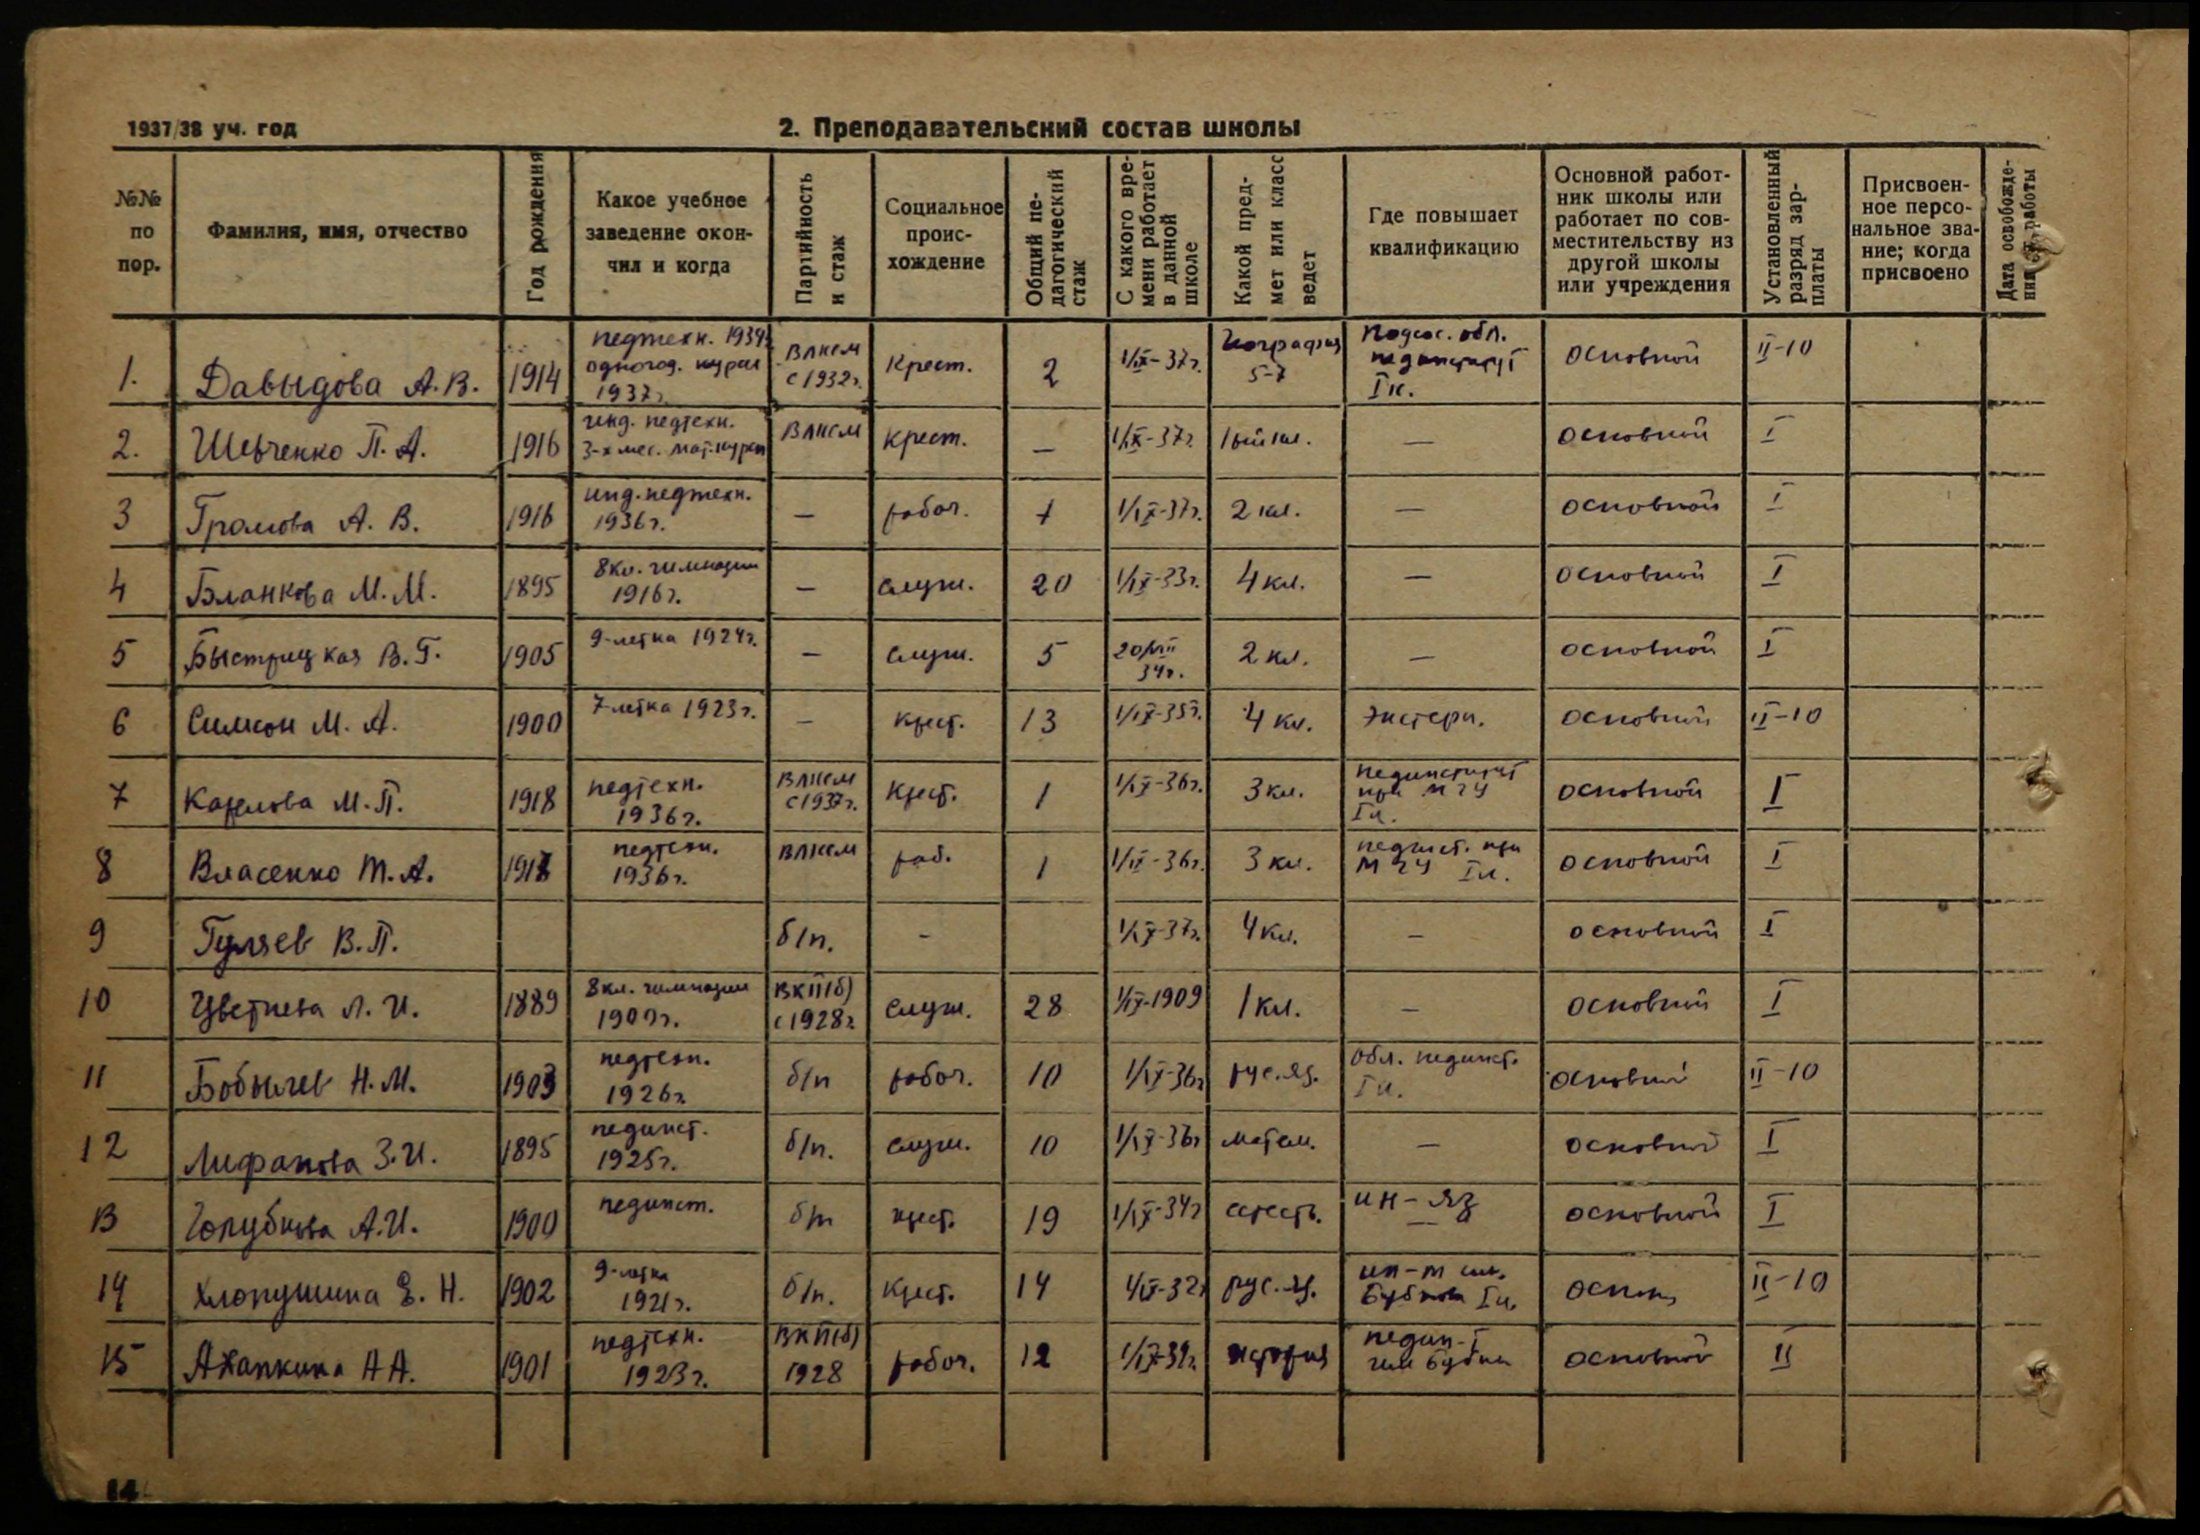 1937/38 уч. год
2. Преподавательский состав школы
№№ по пор.
Фамилия, имя, отчество
Год рождения
Какое учебное заведение окон-чил и когда
Партийность и стаж
Социальное проис-хождение
Общий пе-дагогический стаж
С какого вре-мени работает в данной школе
Какой пред-мет или класс ведет
Где повышает квалификацию
Основной работ-ник школы или работает по сов-местительству из другой школы или учреждения
Установленный разряд зар-платы
Присвоен-ное персо-нальное зва-ние; когда присвоено
Дата освобожде-ния работы
1. Давыдова А.В. 1914 педтехн. 1934 одногод. курсы 1937г. ВЛКСМ с 1932г. Крест. 2 1/IX-37г. География 5-7 обл. пединститут I к. основной II-10
2. Шевченко П.А. 1916 педтехн. 3-х мес. мат. курсы ВЛКСМ крест. — 1/IX-37г. 1ый кл. — основной I
3 Громова А.В. 1916 инд. педтехн. 1936г. — рабоч. 1 1/IX-37г. 2 кл. — основной I
4 Бланкова М.М. 1895 8 кл. гимназии 1916г. — служ. 20 1/IX-33г. 4 кл. — основной I
5 Быстрицкая В.Г. 1905 9-летка 1924г. — служ. 5 20/VIII 34г. 2 кл. — основной I
6 Симкон М.А. 1900 7-летка 1923г. — крест. 13 1/IX-35г. 4 кл. Экстерн. основной II-10
7 Карелова М.П. 1918 педтехн. 1936г. ВЛКСМ с 1937г. крест. 1 1/IX-36г. 3 кл. пединститут при МГУ I к. основной I
8 Власенко Т.А. 1917 педтехн. 1936г. ВЛКСМ раб. 1 1/IX-36г. 3 кл. пединст. при МГУ I к. основной I
9 Гуляев В.П. б/п. - 1/IX-37г. 4 кл. — основной I
10 Цветкова Л.И. 1889 8 кл. гимназии ВКП(б) с 1928г. служ. 28 1/IX-1909 1 кл. — основной I
11 Бобылев Н.М. 1903 педтехн. 1926г. б/п рабоч. 10 1/IX-36г. рус. яз. Обл. пединст. I к. основной II-10
12 Лифанова З.И. 1895 пединст. 1925г. б/п. служ. 10 1/IX-36г матем. — основной I
13 Голубкова А.И. 1900 пединст. б/п крест. 19 1/IX-34г естеств. ин-яз — основной I
14 Хлопушина Е.Н. 1902 9-летка 1921г. б/п. крест. 14 1/IX-32г рус. яз. ин-т им. Бубнова I к. II-10
15 Ахапкина А А. 1901 педтехн. 1923г. ВКП(б) 1928 рабоч. 12 история педин-т им Бубн основной II
14